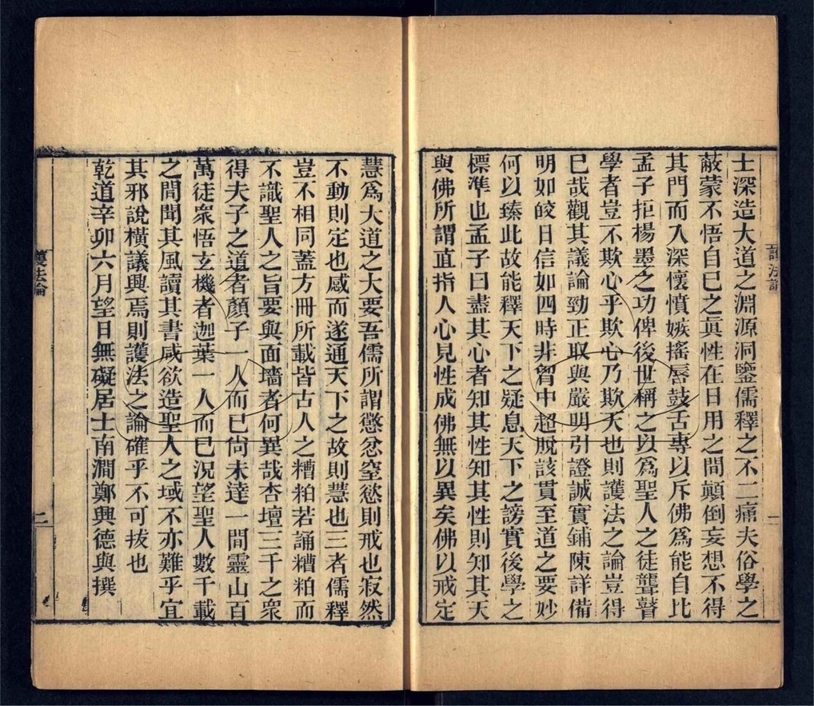 護法論
一
士深造大道之淵源洞鑒儒釋之不二痛夫俗學之
蔽蒙不悟自巳之眞性在日用之間顚倒妄想不得
其門而入深懷憤嫉搖唇鼓舌專以斥佛爲能自比
孟子拒楊墨之功俾後世稱之以爲聖人之徒聾瞽
學者豈不欺心乎欺心乃欺天也則護法之論豈得
巳哉觀其議論勁正取與嚴明引證誠實鋪陳詳備
明如皎日信如四時非胷中超脫該貫至道之要妙
何以臻此故能釋天下之疑息天下之謗實後學之
標準也孟子曰盡其心者知其性知其性則知其天
與佛所謂直指人心見性成佛無以異矣佛以戒定
慧爲大道之大要吾儒所謂懲忿窒慾則戒也寂然
不動則定也感而遂通天下之故則慧也三者儒釋
豈不相同蓋方冊所載皆古人之糟粕若誦糟粕而
不識聖人之旨要與面墻者何異哉杏壇三千之衆
得夫子之道者顏子一人而巳尙未達一間靈山百
萬徒衆悟玄機者迦葉一人而巳況望聖人數千載
之間聞其風讀其書咸欲造聖人之域不亦難乎宜
其邪說橫議興焉則護法之論確乎不可拔也
乾道辛卯六月望日無礙居士南澗鄭興德與撰
護法論
二